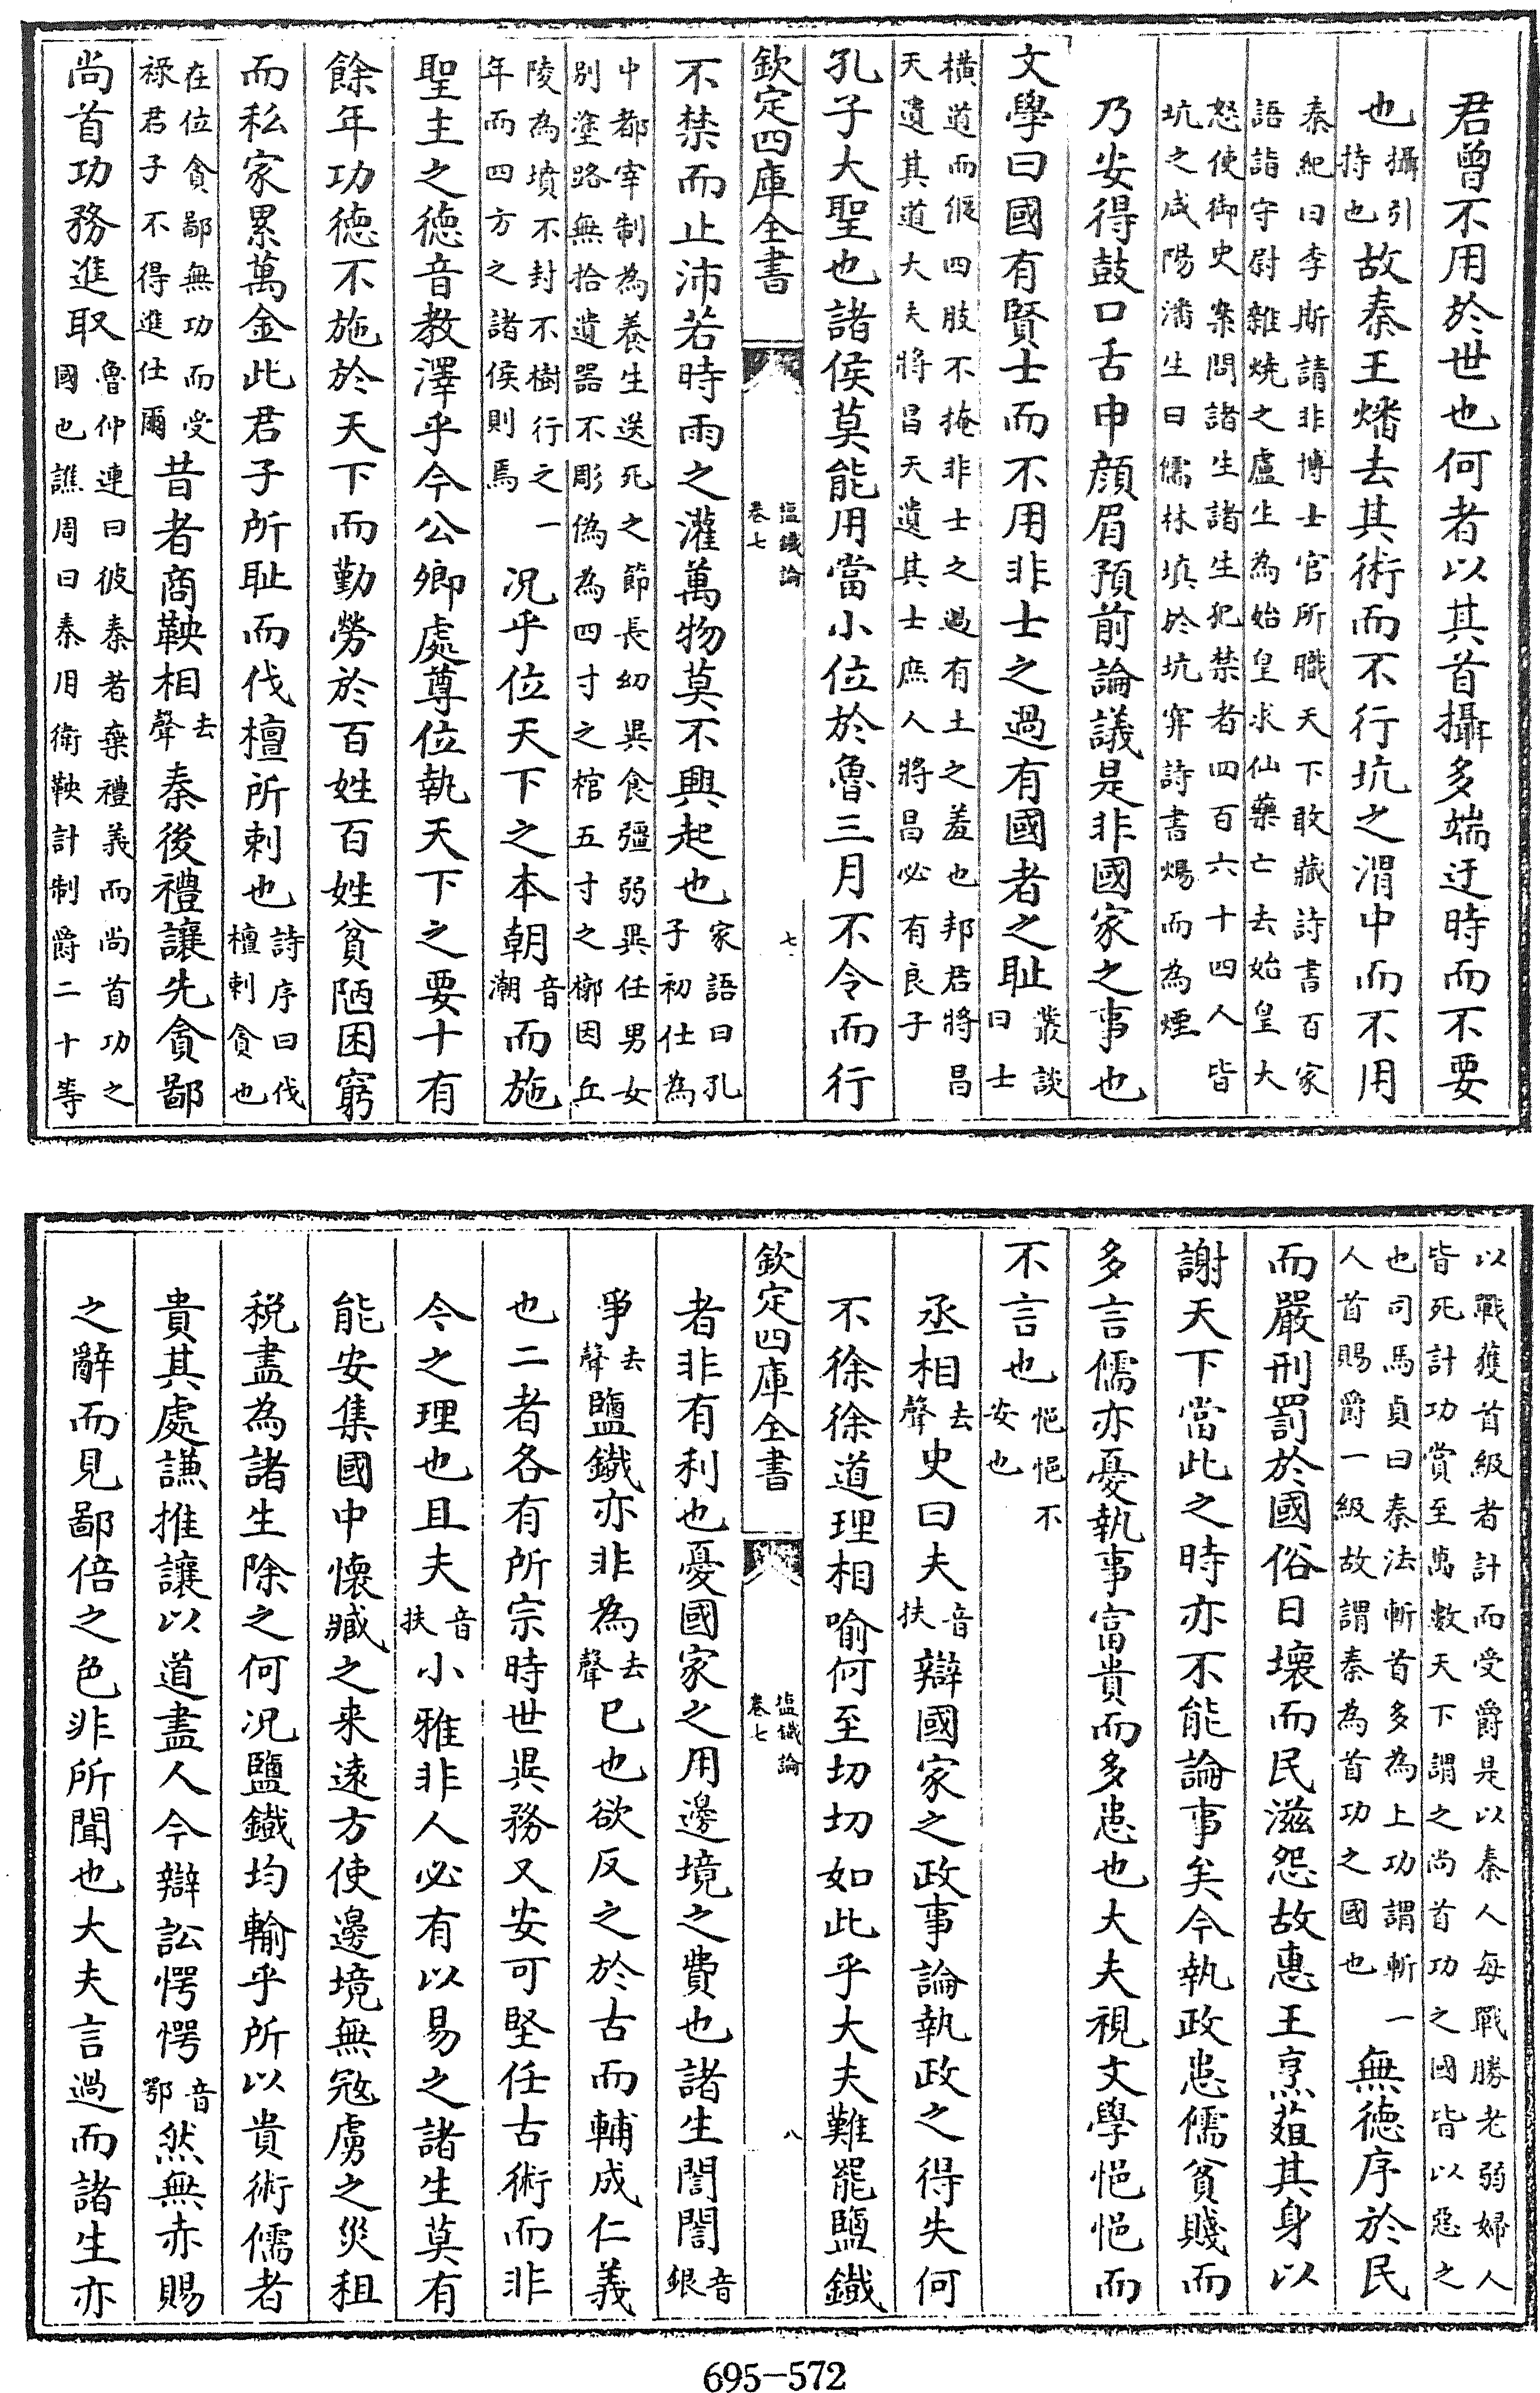 君曾不用於世也何者以其首攝多端迂時而不要
也攝引持也故秦王燔去其術而不行坑之渭中而不用
秦紀曰李斯請非博士官所職天下敢藏詩書百家
語詣守尉雜燒之盧生為始皇求仙藥亡去始皇大
怒使御史案問諸生諸生犯禁者四百六十四人皆
坑之咸陽潘生曰儒林填於坑穽詩書煬而為煙
乃安得鼓口舌申顔眉預前論議是非國家之事也
文學曰國有賢士而不用非士之過有國者之耻叢談曰士
橫道而偃四肢不掩非士之過有土之羞也邦君將昌
天遺其道大夫將昌天遺其士庶人將昌必有良子
孔子大聖也諸侯莫能用當小位於魯三月不令而行
欽定四庫全書
塩鐵論
卷七
七
不禁而止沛若時雨之灌萬物莫不興起也家語曰孔子初仕為
中都宰制為養生送死之節長幼異食彊弱異任男女
別塗路無拾遺器不彫偽為四寸之棺五寸之槨因丘
陵為墳不封不樹行之一
年而四方之諸侯則焉
況乎位天下之本朝音潮而施
聖主之德音教澤乎今公卿處尊位執天下之要十有
餘年功德不施於天下而勤勞於百姓百姓貧陋困窮
而私家累萬金此君子所耻而伐檀所刺也詩序曰伐檀刺貪也
在位貪鄙無功而受
祿君子不得進仕爾
昔者商鞅相去聲秦後禮讓先貪鄙
尚首功務進取魯仲連曰彼秦者棄禮義而尚首功之
國也譙周曰秦用衛鞅計制爵二十等
以戰獲首級者計而受爵是以秦人每戰勝老弱婦人
皆死計功賞至萬數天下謂之尚首功之國皆以惡之
也司馬貞曰秦法斬首多為上功謂斬一
人首賜爵一級故謂秦為首功之國也
無德序於民
而嚴刑罰於國俗日壞而民滋怨故惠王烹葅其身以
謝天下當此之時亦不能論事矣今執政患儒貧賤而
多言儒亦憂執事富貴而多患也大夫視文學悒悒而
不言也悒悒不安也
丞相去聲史曰夫音扶辯國家之政事論執政之得失何
不徐徐道理相喻何至切切如此乎大夫難罷鹽鐵
欽定四庫全書
塩鐵論
卷七
八
者非有利也憂國家之用邊境之費也諸生誾誾音銀
爭去聲鹽鐵亦非為去聲巳也欲反之於古而輔成仁義
也二者各有所宗時世異務又安可堅任古術而非
今之理也且夫音扶小雅非人必有以易之諸生莫有
能安集國中懷臧之来遠方使邊境無宼虜之災租
税盡為諸生除之何況鹽鐵均輸乎所以貴術儒者
貴其處謙推讓以道盡人今辯訟愕愕音鄂然無赤賜
之辭而見鄙倍之色非所聞也大夫言過而諸生亦
695-572